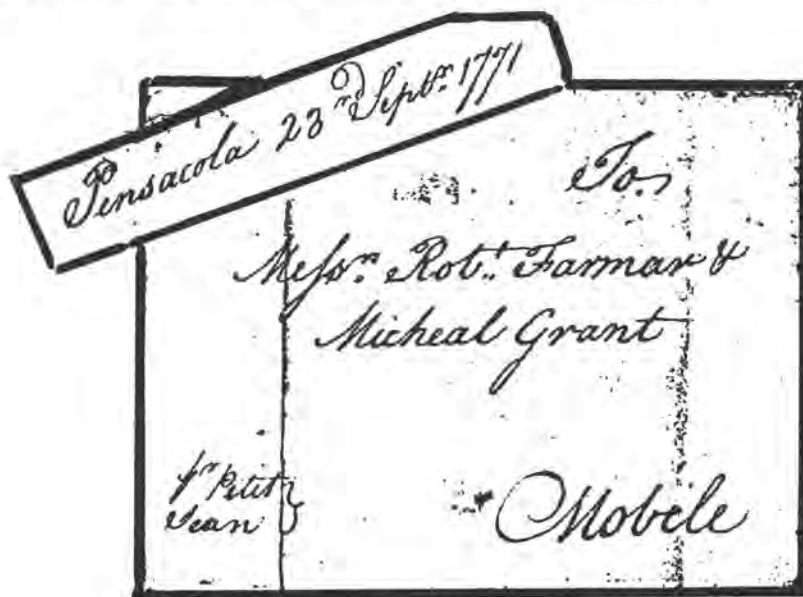 Pensacola 23rd Septr. 1771
To
Messrs. Robt. Farmar &
Micheal Grant
pr Petit
Jean
Mobile